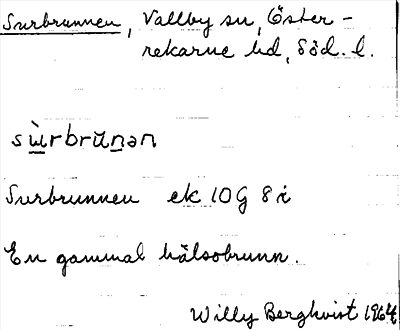 Surbrunnen, Vallby sn, Öster-
rekarne hd, Söd. l.
sùrbrunən
Surbrunnen ek 10G 8i
En gammal hälsobrunn.
Willy Bergkvist 1964